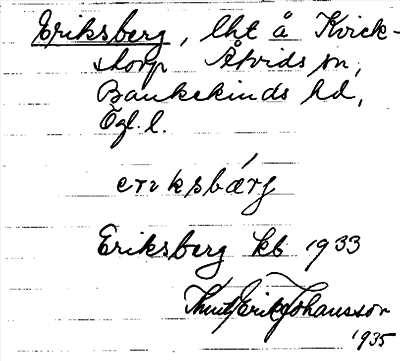 Eriksberg, lht å Kvick-
storp Åtvids sn,
Bankekinds hd,
Ögl. l.
eriksbärg
Eriksberg kb 1933
Knut Erik Johansson
1935